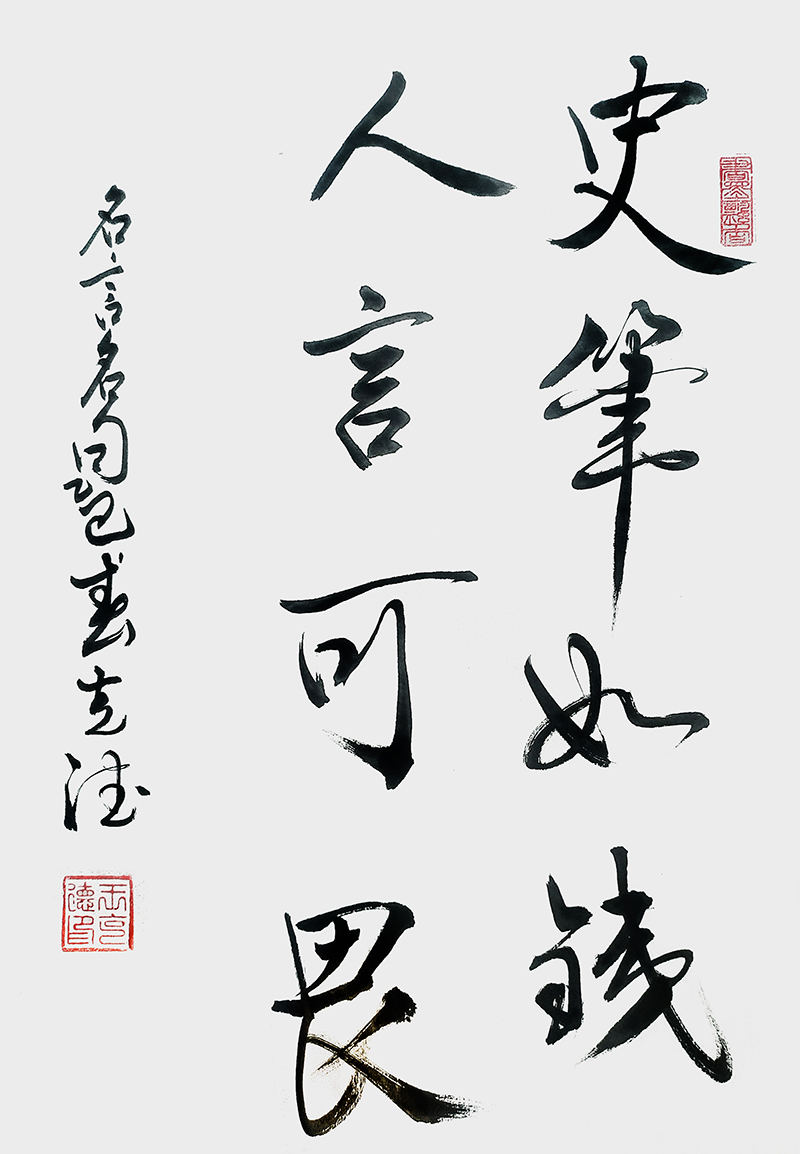 史筆如鐵
人言可畏
名言名句